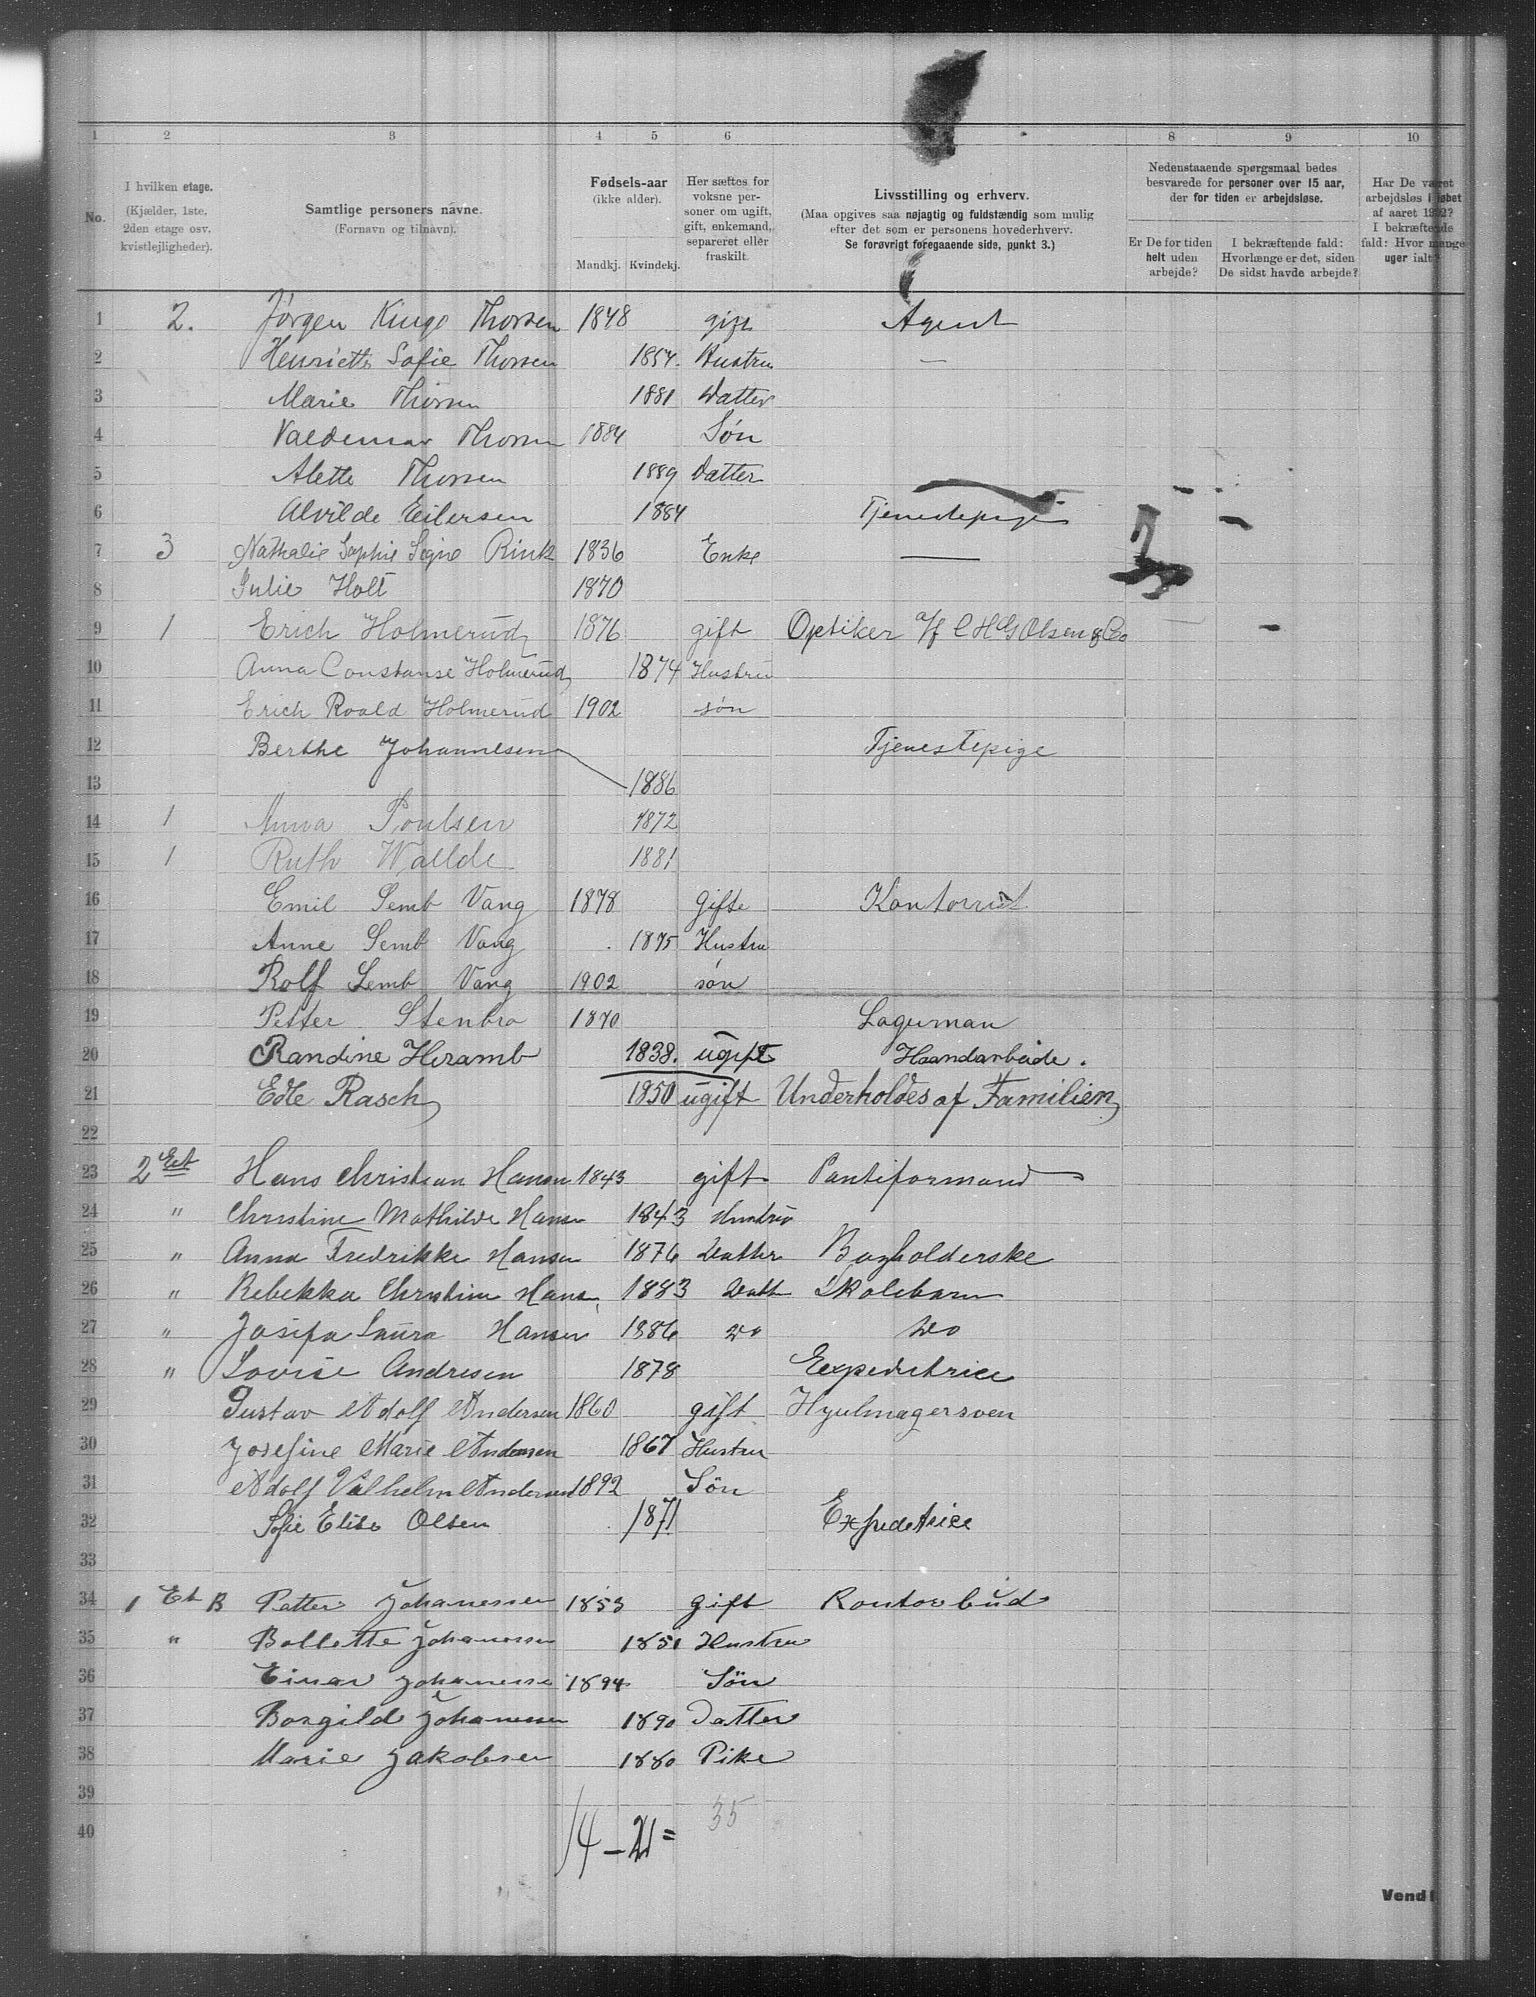 1 2 3 4 5 6 7 8 9 10
No.
I hvilken etage.
(Kjælder, 1ste, 2den etage osv. kvistlejligheder).
Samtlige personers navne.
(Fornavn og tilnavn).
Fødsels-aar
(ikke alder).
Mandkj. Kvindekj.
Her sættes for voksne personer om ugift, gift, enkemand, separeret eller fraskilt.
Livsstilling og erhverv.
(Maa opgives saa nøjagtig og fuldstændig som mulig
efter det som er personens hovederhverv.
Se forøvrigt foregaaende side, punkt 3.)
Nedenstaaende spørgsmaal bedes
besvarede for personer over 15 aar,
der for tiden er arbejdsløse.
Er De for tiden helt uden arbejde?
I bekræftende fald: Hvorlænge er det, siden De sidst havde arbejde?
Har De været arbejdsløs i løbet af aaret 1902? I bekræftende fald: Hvor mange uger ialt?
1 2. Jørgen Kingo Thorsen 1848 gift Agent
2 Henriette Sofie Thorsen 1854. Hustru —
3 Marie Thorsen 1881 Datter
4 Valdemar Thorsen 1884 Søn
5 Alette Thorsen 1889 Datter
6 Alvilde Eilersen 1884 Tjenestepige
7 3 Nathalie Sophie Signe Rink 1836 Enke —
8 Julie Holt 1870
9 1 Erich Holmerud 1876 gift Optiker C H G Olsen & Co
10 Anna Constanse Holmerud 1874 Hustru
11 Erich Roald Holmerud 1902 søn
12 Berthe Johannesen Tjenestepige
13 1886
14 1 Anna Poulsen 1872
15 1 Ruth Wallde 1881
16 Emil Semb Vang 1878 Gifte Kontorist
17 Anne Semb Vang 1875 Hustru
18 Rolf Semb Vang 1902 søn
19 Petter Stenbro 1870 Lagerman
20 Randine Heramb 1838. ugift Haandarbeide.
21 Edle Rasch 1850 ugift Underholdes af Familien
22
23 2 Et Hans Christian Hansen 1843 gift Pantiformand
24 " Christine Mathilde Hansen 1843 Hustru
25 " Anna Fredrikke Hansen 1876 Datter Bogholderske
26 " Rebekka Christine Hansen 1883 Datt Skolebarn
27 " Josefa Laura Hansen 1886 Do Do
28 " Lovise Andresen 1878 Expeditrice
29 Gustav Adolf Andersen 1860 gift Hjulmagersven
30 Josefine Marie Andersen 1867 Hustru
31 Adolf Vilhelm Andersen 1892 Søn
32 Sofie Elise Olsen 1871 Expeditrice
33
34 1 Et B Petter Johanessen 1853 gift Kontorbud
35 " Bollette Johanessen 1851 Hustru
36 Einar Johanessen 1894 Søn
37 Borgild Johanessen 1890 Datter
38 Marie Jakobsen 1880 Pike
39
40
14 – 21 = 35
Vend!